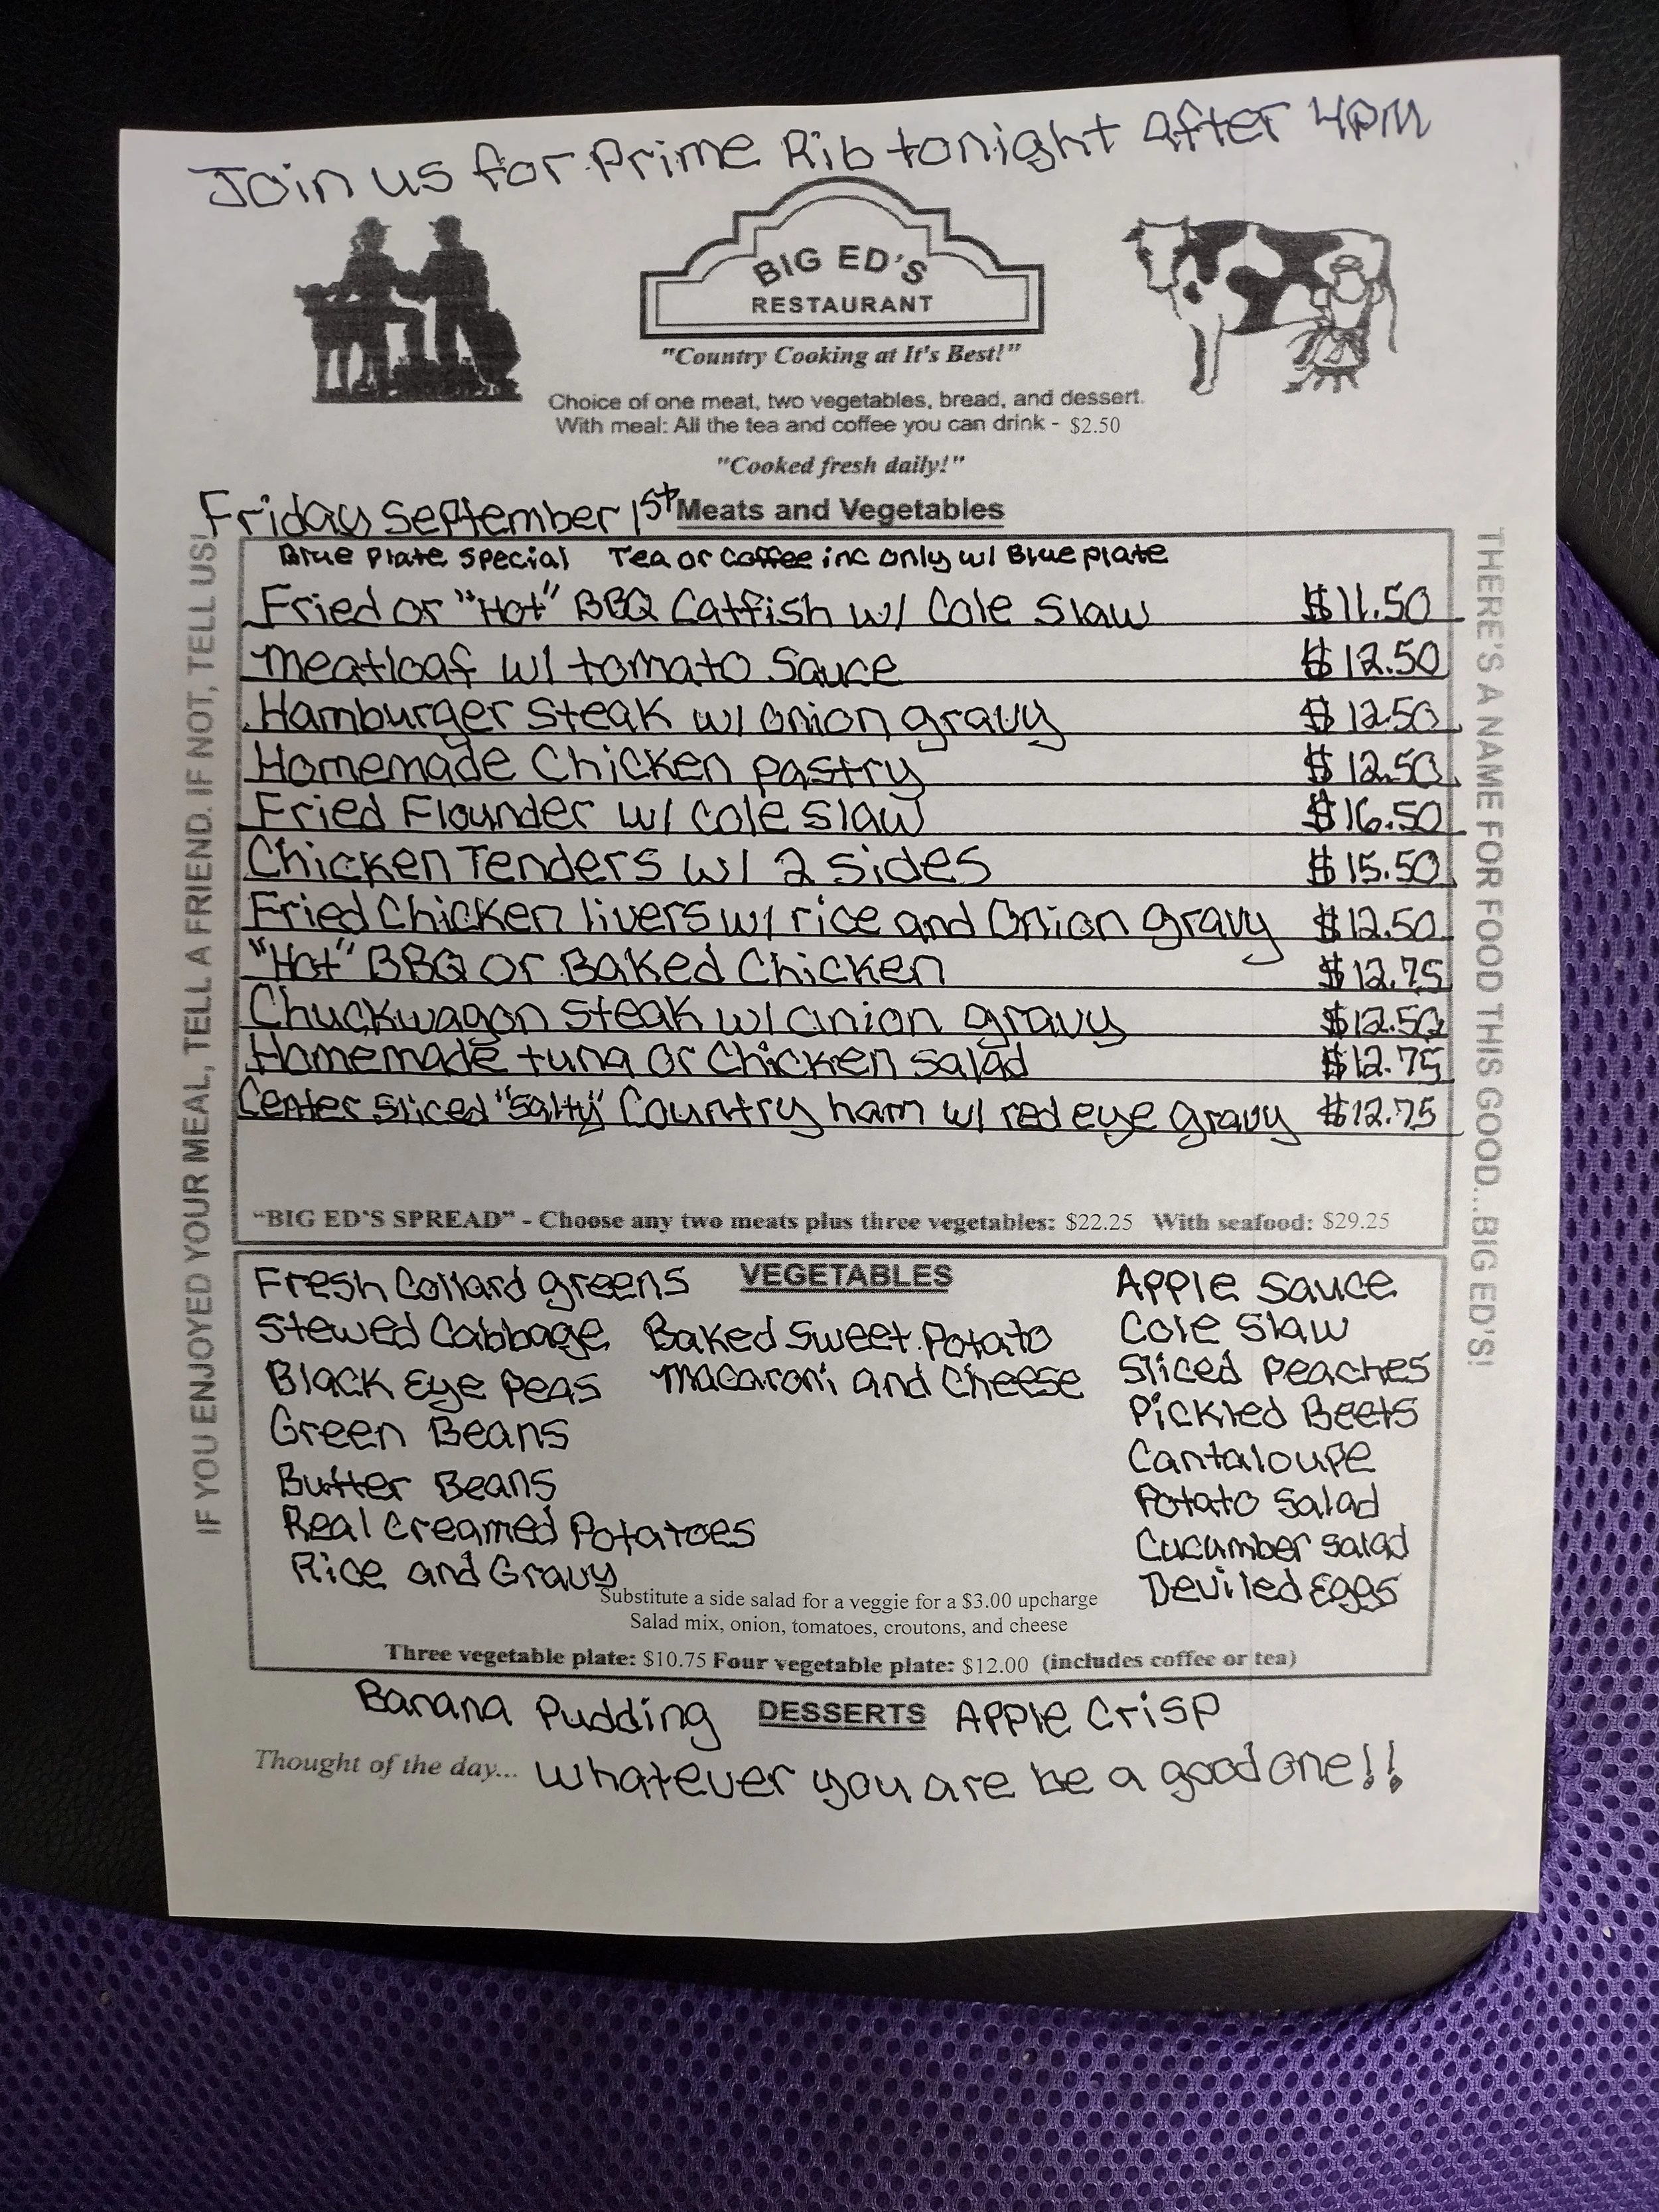 Join us for Prime Rib tonight after 4PM
BIG ED'S
RESTAURANT
"Country Cooking at It's Best!"
Choice of one meat, two vegetables, bread, and dessert.
With meal: All the tea and coffee you can drink - $2.50
"Cooked fresh daily!"
Friday September 1st Meats and Vegetables
Blue Plate Special Tea or Coffee inc only w/ Blue plate
Fried or "Hot" BBQ Catfish w/ Cole Slaw $11.50
Meatloaf w/ tomato Sauce $12.50
Hamburger Steak w/ onion gravy $12.50
Homemade Chicken pastry $12.50
Fried Flounder w/ Cole Slaw $16.50
Chicken Tenders w/ 2 sides $15.50
Fried Chicken livers w/ rice and Onion gravy $12.50
"Hot" BBQ or Baked Chicken $12.75
Chuckwagon steak w/ onion gravy $12.50
Homemade tuna or Chicken salad $12.75
Center Sliced "Salty" Country ham w/ red eye gravy $12.75
"BIG ED'S SPREAD" - Choose any two meats plus three vegetables: $22.25 With seafood: $29.25
IF YOU ENJOYED YOUR MEAL, TELL A FRIEND. IF NOT, TELL US!
THERE'S A NAME FOR FOOD THIS GOOD...BIG ED'S!
VEGETABLES
Fresh Collard greens
Stewed Cabbage
Black Eye Peas
Green Beans
Butter Beans
Real Creamed Potatoes
Rice and Gravy
Baked Sweet Potato
Macaroni and Cheese
Apple Sauce
Cole Slaw
Sliced Peaches
Pickled Beets
Cantaloupe
Potato Salad
Cucumber salad
Deviled Eggs
Substitute a side salad for a veggie for a $3.00 upcharge
Salad mix, onion, tomatoes, croutons, and cheese
Three vegetable plate: $10.75 Four vegetable plate: $12.00 (includes coffee or tea)
Banana Pudding DESSERTS Apple Crisp
Thought of the day... Whatever you are be a good one!!